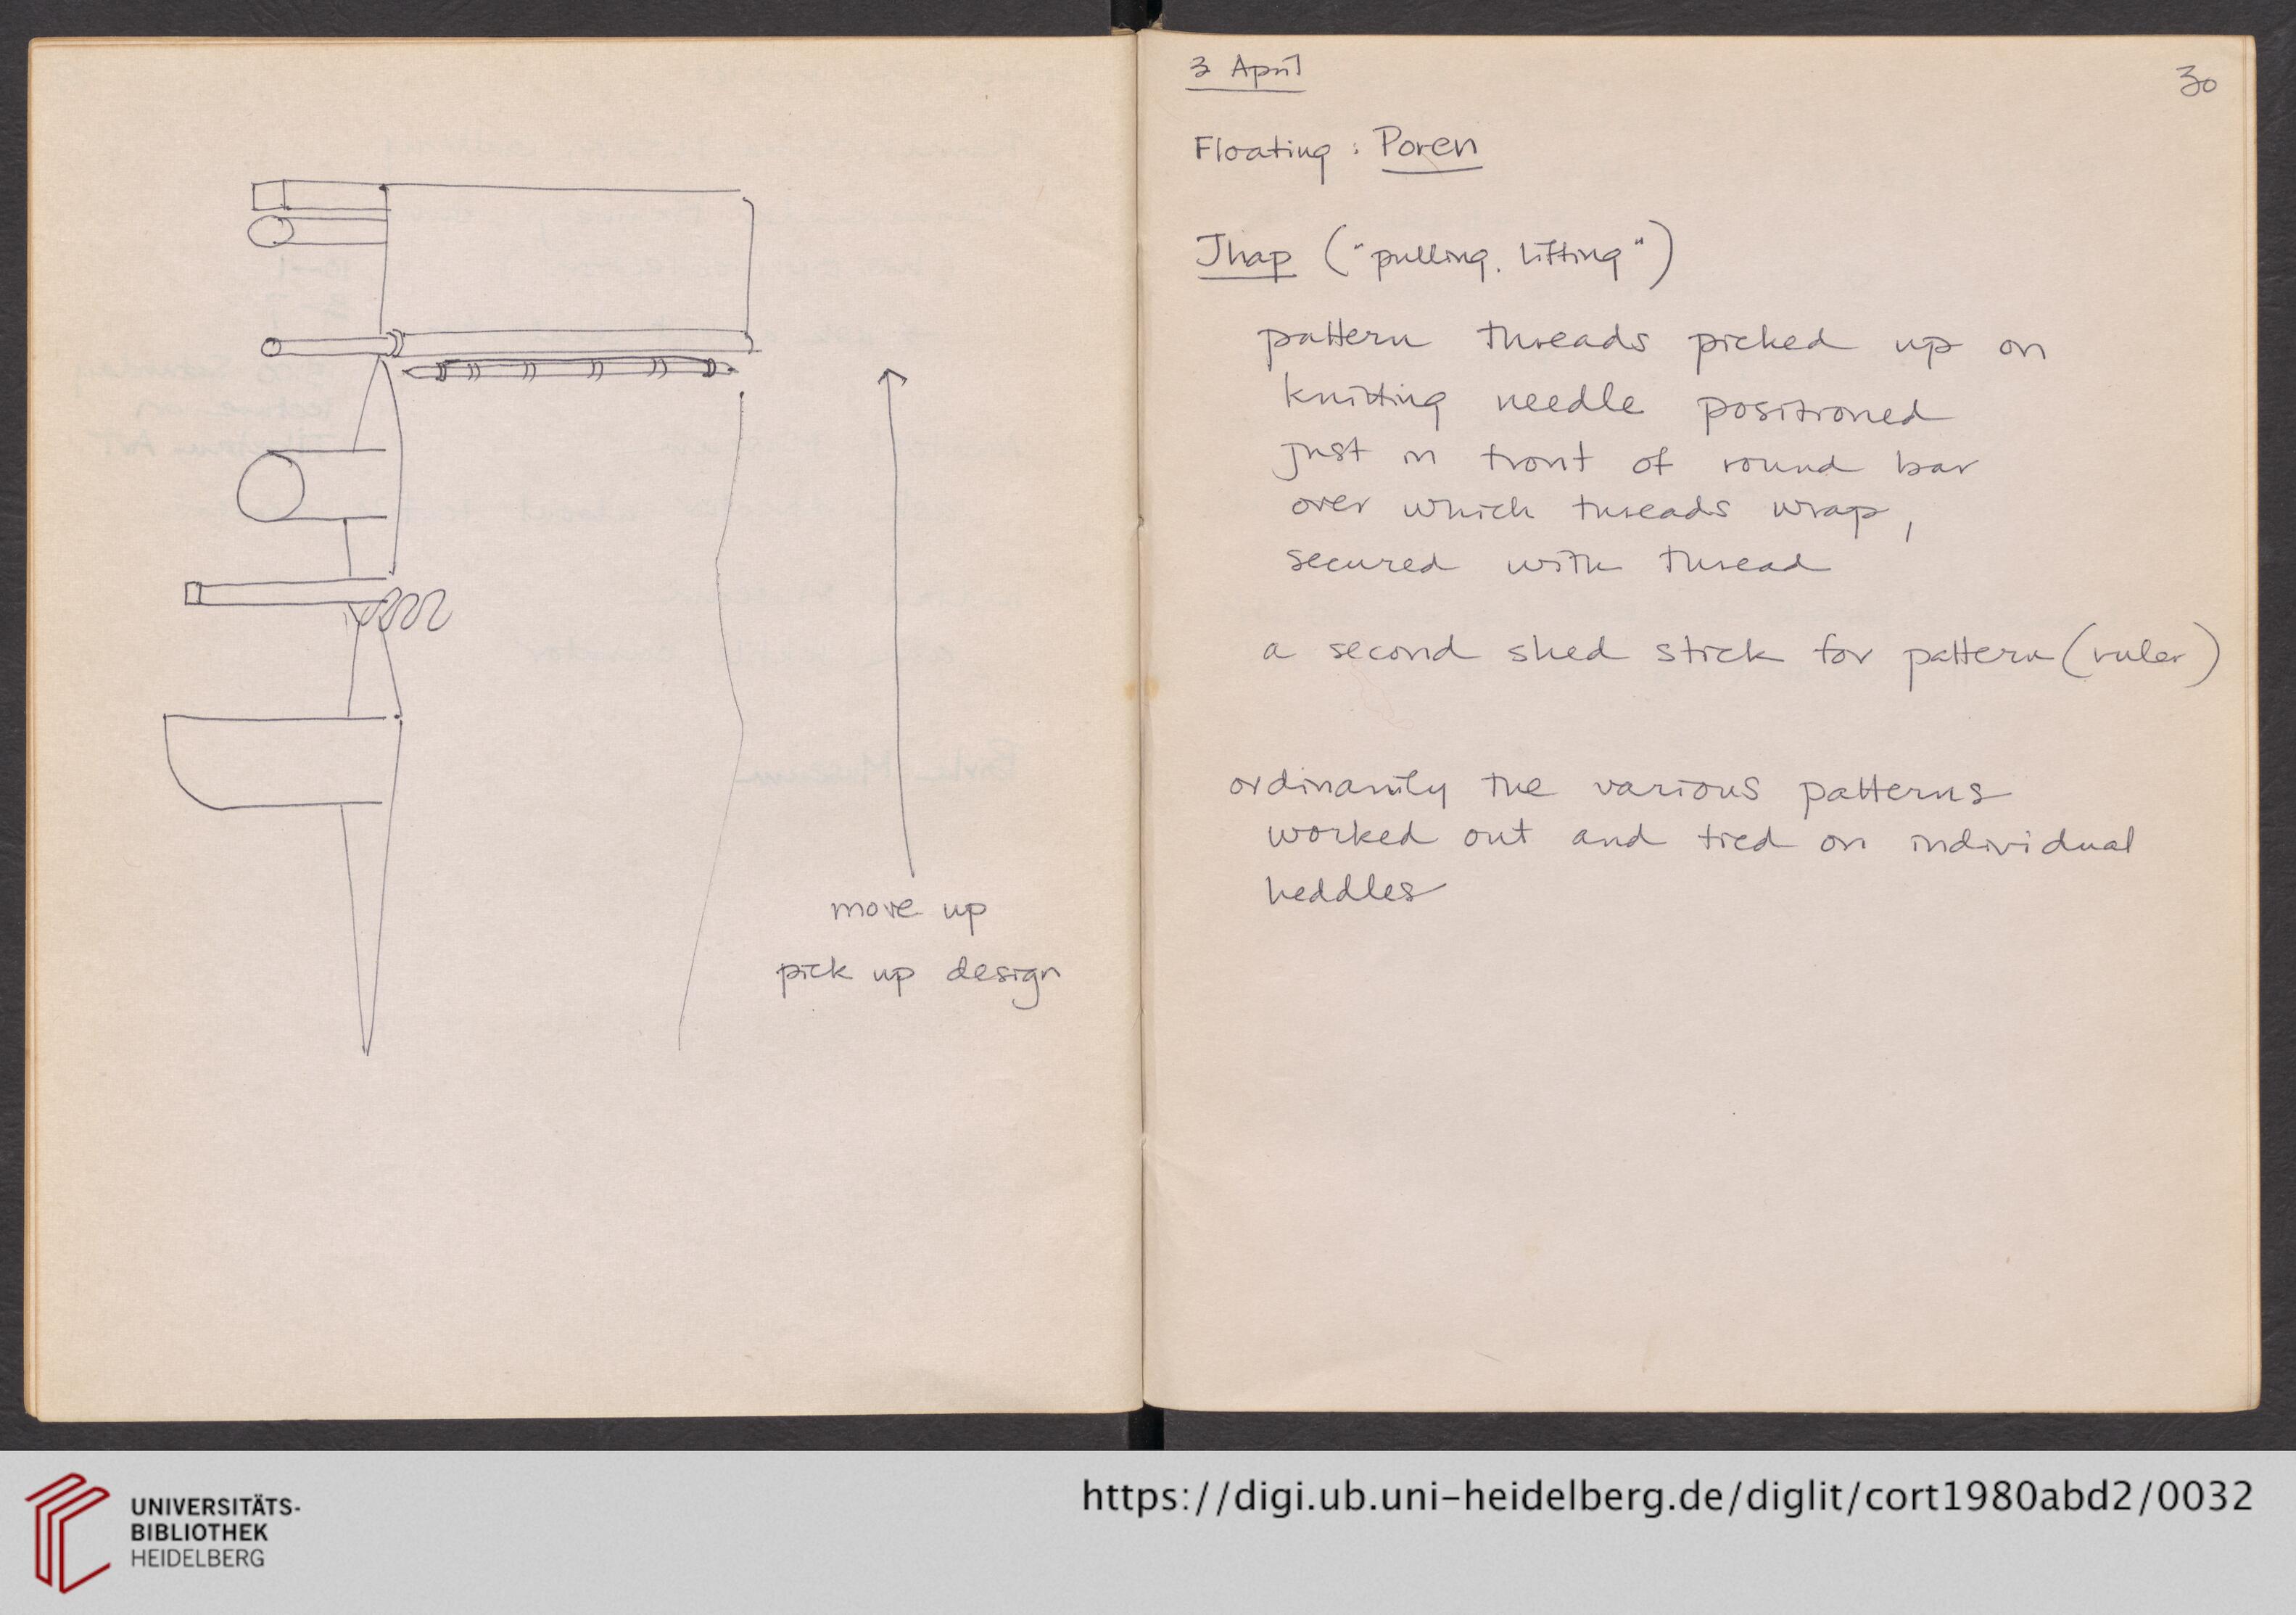 move up
pick up design
3 April
30
Floating : Poren
Jhap ("pulling, lifting")
pattern threads picked up on
knitting needle positioned
just in front of round bar
over which threads wrap,
secured with thread
a second shed stick for pattern (ruler)
ordinarily the various patterns
worked out and tied on individual
heddles
UNIVERSITÄTS-
BIBLIOTHEK
HEIDELBERG
https://digi.ub.uni-heidelberg.de/diglit/cort1980abd2/0032